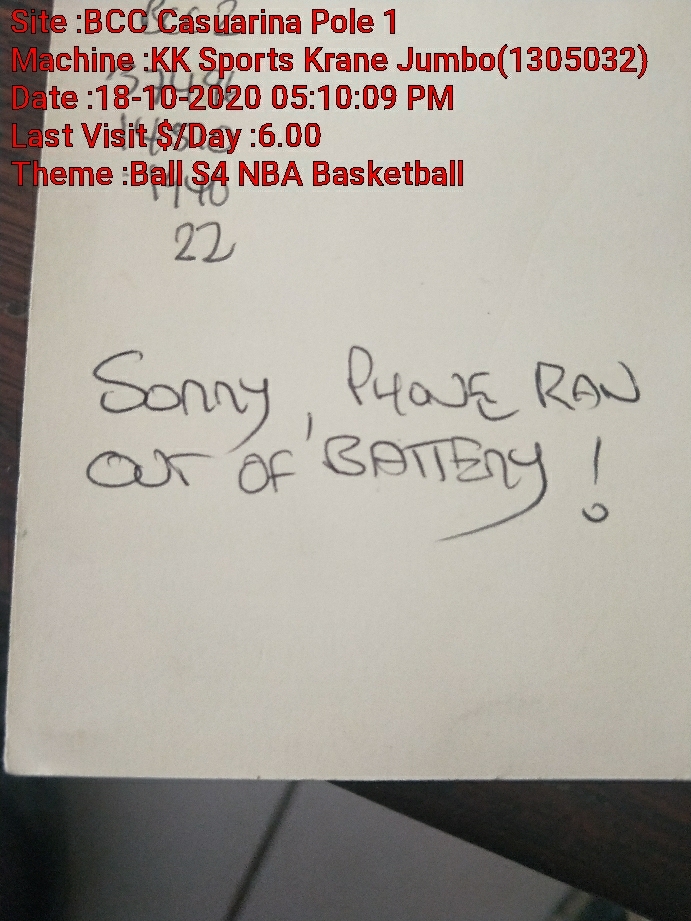 Site :BCC Casuarina Pole 1
Machine :KK Sports Krane Jumbo(1305032)
Date :18-10-2020 05:10:09 PM
Last Visit $/Day :6.00
Theme :Ball S4 NBA Basketball
22
Sorry, PHONE RAN
OUT OF BATTERY!